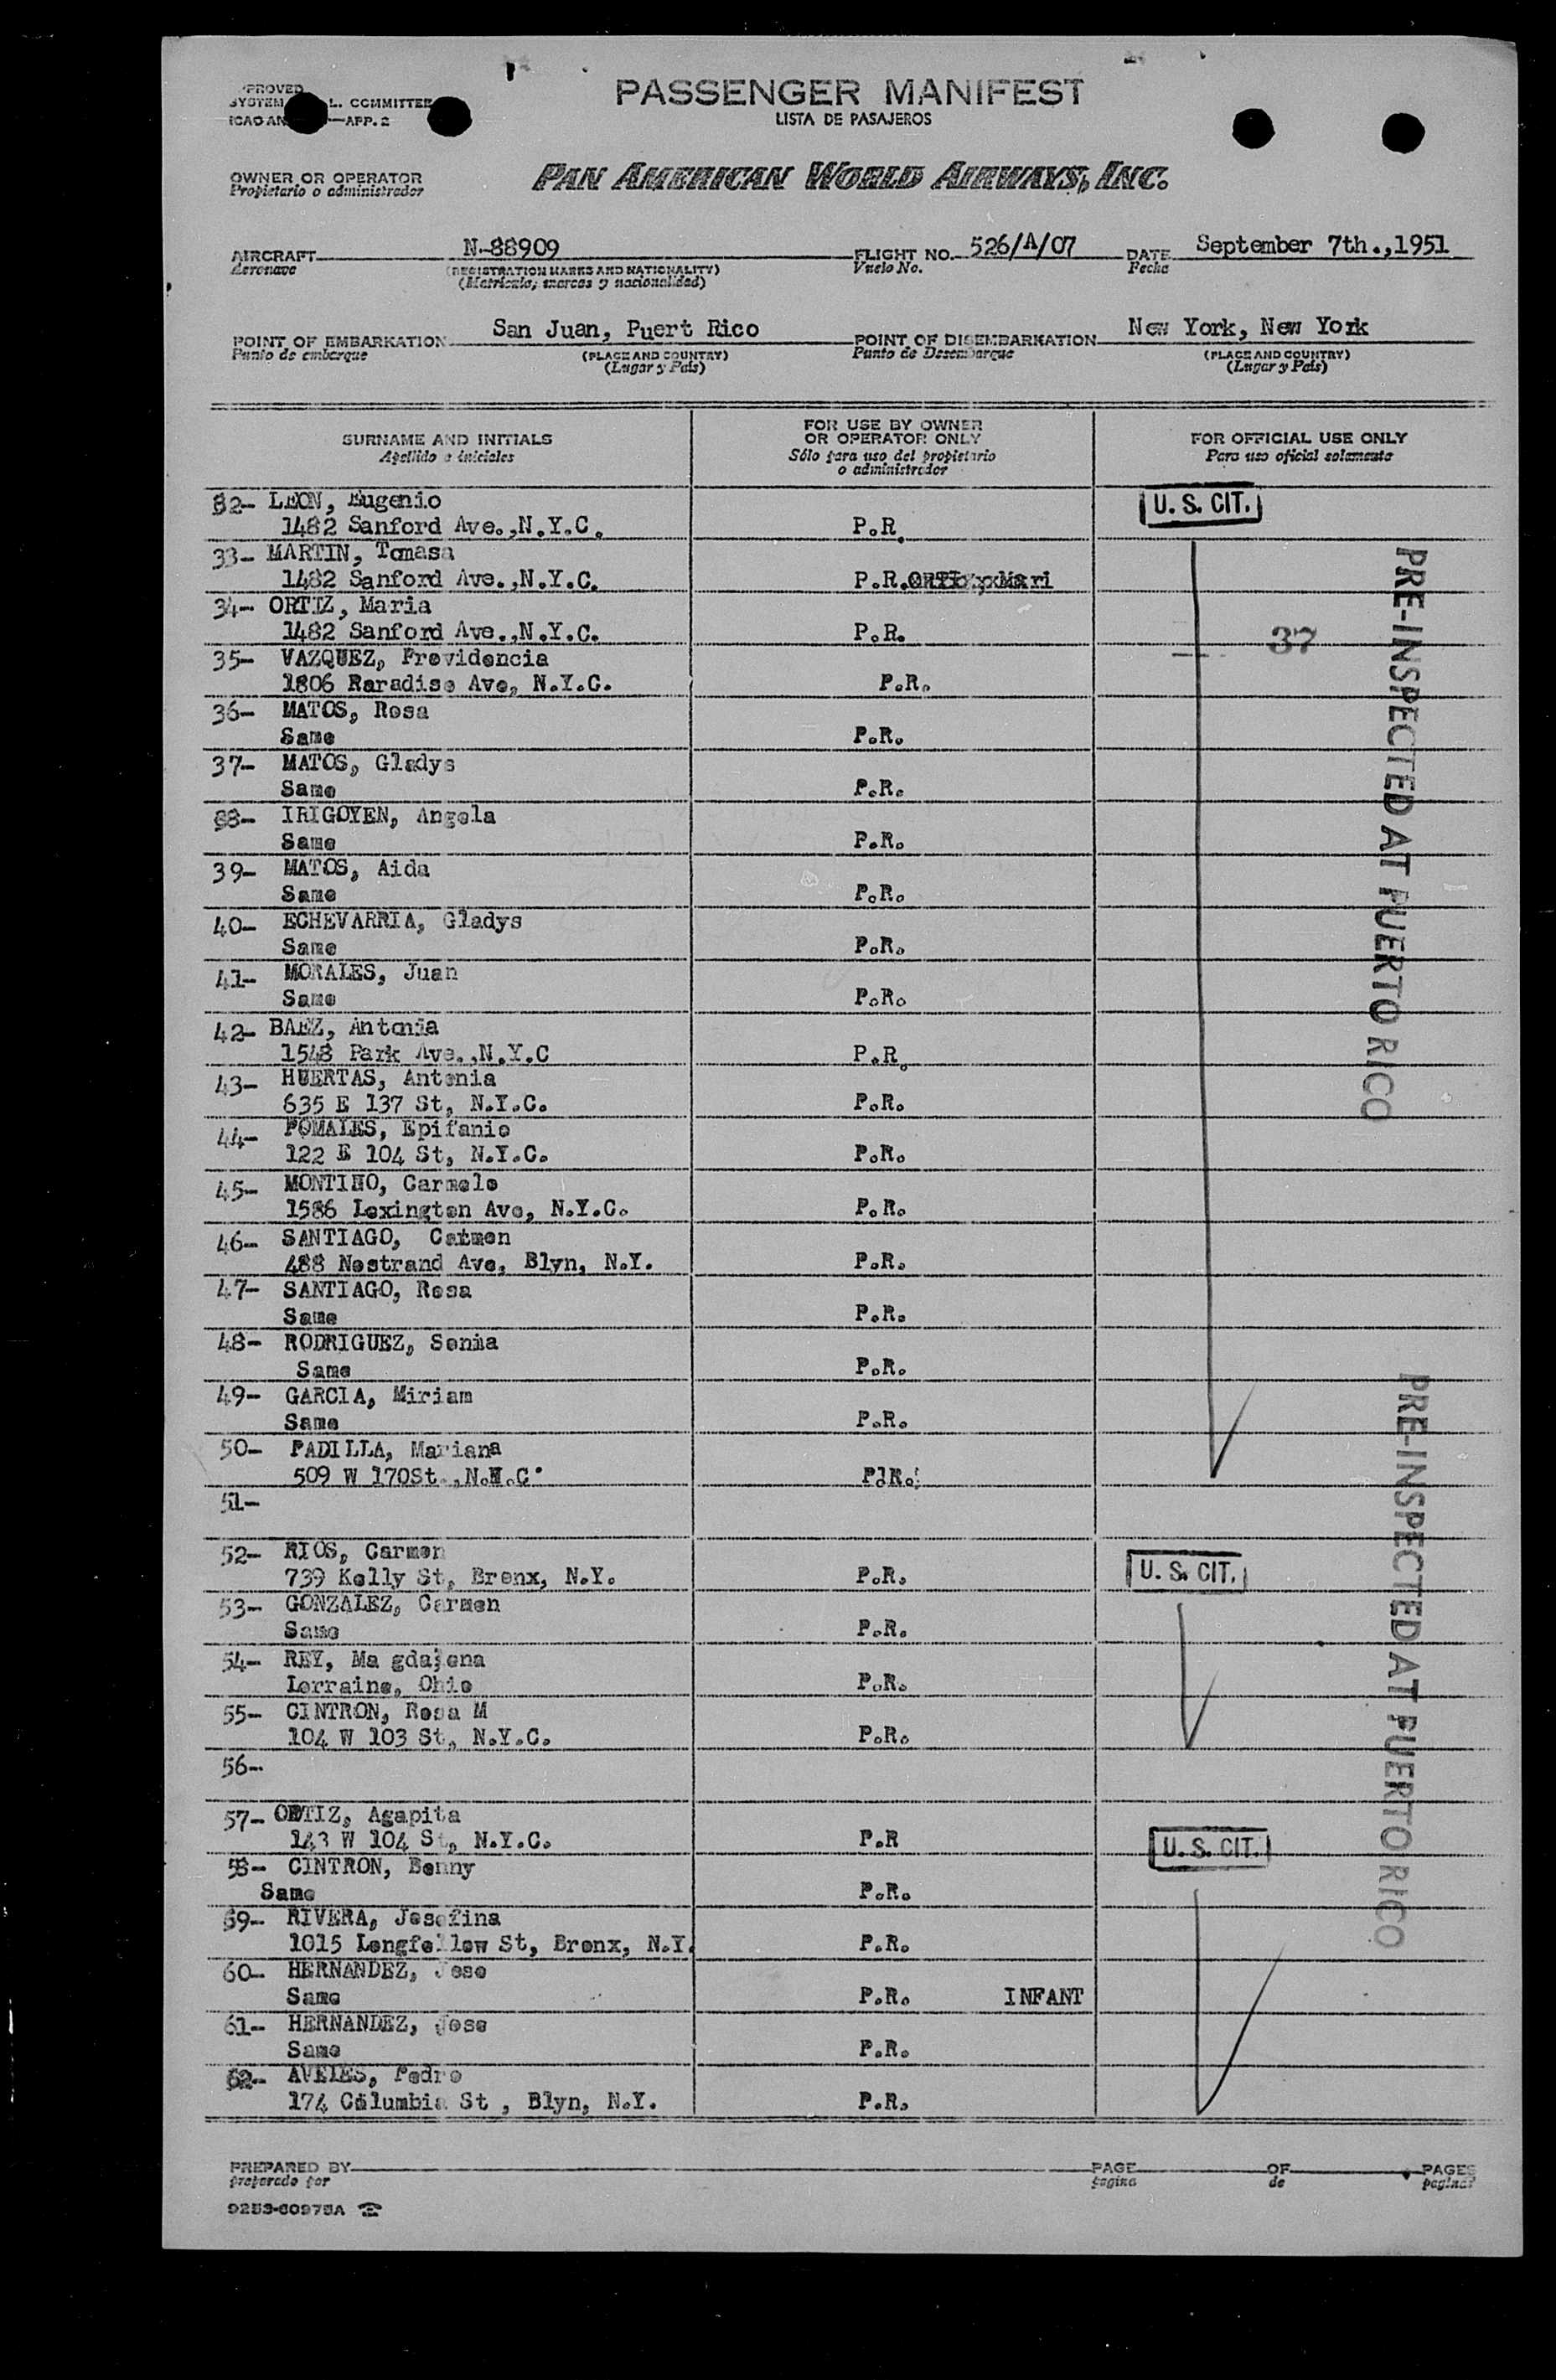 PROVED
SYSTEM L. COMMITTEE
ICAO AN —APP. 2
PASSENGER MANIFEST
LISTA DE PASAJEROS
OWNER OR OPERATOR
Propietario o administrador
PAN AMERICAN WORLD AIRWAYS, INC.
AIRCRAFT N-88909 FLIGHT NO. 526/A/07 DATE September 7th.,1951
Aeronave (REGISTRATION MARKS AND NATIONALITY) Vuelo No. Fecha
(Matricula, marcas y nacionalidad)
POINT OF EMBARKATION San Juan, Puert Rico POINT OF DISEMBARKATION New York, New York
Punto de embarque (PLACE AND COUNTRY) Punto de Desembarque (PLACE AND COUNTRY)
(Lugar y País) (Lugar y País)
SURNAME AND INITIALS
Apellido e iniciales
FOR USE BY OWNER
OR OPERATOR ONLY
Sólo para uso del propietario
o administrador
FOR OFFICIAL USE ONLY
Para uso oficial solamente
32- LEON, Eugenio U. S. CIT.
1482 Sanford Ave.,N.Y.C. P.R.
33- MARTIN, Tomasa
1482 Sanford Ave.,N.Y.C. P.R.
34- ORTIZ, Maria
1482 Sanford Ave.,N.Y.C. P.R. 37
35- VAZQUEZ, Providencia
1806 Raradise Ave, N.Y.C. P.R.
36- MATOS, Rosa
Same P.R.
37- MATOS, Gladys
Same P.R.
38- IRIGOYEN, Angela
Same P.R.
39- MATOS, Aida
Same P.R.
40- ECHEVARRIA, Gladys
Same P.R.
41- MORALES, Juan
Same P.R.
42- BAEZ, Antonia
1548 Park Ave.,N.Y.C P.R.
43- HUERTAS, Antonia
635 E 137 St, N.Y.C. P.R.
44- POMALES, Epifanio
122 E 104 St, N.Y.C. P.R.
45- MONTIHO, Carmelo
1586 Lexington Ave, N.Y.C. P.R.
46- SANTIAGO, Carmen
488 Nostrand Ave, Blyn, N.Y. P.R.
47- SANTIAGO, Rosa
Same P.R.
48- RODRIGUEZ, Sonia
Same P.R.
49- GARCIA, Miriam
Same P.R.
50- PADILLA, Mariana
509 W 170St.,N.Y.C. P.R.
51-
52- RIOS, Carmen
739 Kelly St, Bronx, N.Y. P.R. U. S. CIT.
53- GONZALEZ, Carmen
Same P.R.
54- REY, Ma gdalena
Lorraine, Ohio P.R.
55- CINTRON, Rosa M
104 W 103 St, N.Y.C. P.R.
56-
57- ORTIZ, Agapita
143 W 104 St, N.Y.C. P.R U. S. CIT.
58- CINTRON, Benny
Same P.R.
59- RIVERA, Josefina
1015 Longfellow St, Bronx, N.Y. P.R.
60- HERNANDEZ, Jose
Same P.R. INFANT
61- HERNANDEZ, Jose
Same P.R.
62- AVILES, Pedro
174 Columbia St , Blyn, N.Y. P.R.
PRE-INSPECTED AT PUERTO RICO
PRE-INSPECTED AT PUERTO RICO
PREPARED BY PAGE OF PAGES
preparado por pagina de paginas
9253-60975A